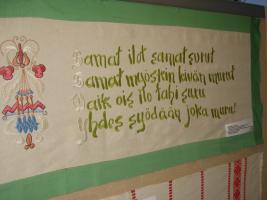 Samat ilot samat surut
Samat myöskin leivän murut
Vaik ois ilo tahi suru
Yhdes syödään joka muru!